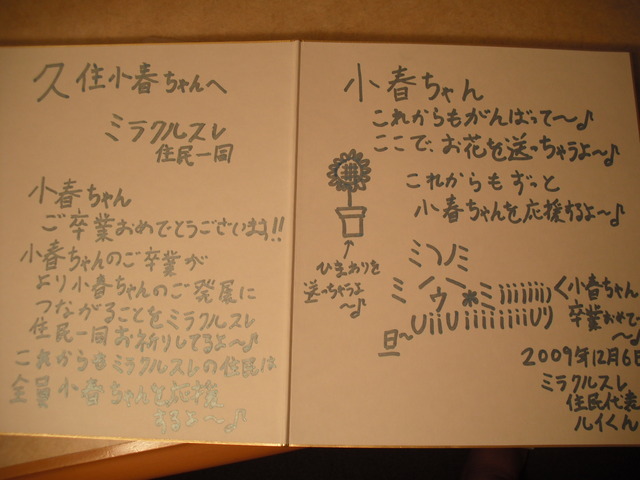 久住小春ちゃんへ
ミラクルスレ
住民一同
小春ちゃん
ご卒業おめでとうございます!!
小春ちゃんのご卒業が
より小春ちゃんのご発展に
つながることをミラクルスレ
住民一同お祈りしてるよ〜♪
これからもミラクルスレの住民は
全員小春ちゃんを応援
するよ〜♪
小春ちゃん
これからもがんばって〜♪
ここで、お花を送っちゃうよ〜♪
これからもずっと
小春ちゃんを応援するよ〜♪
ひまわりを
送っちゃうよ
〜♪
く小春ちゃん
卒業おめで
〜♪
2009年12月6日
ミラクルスレ
住民代表
ルイくん